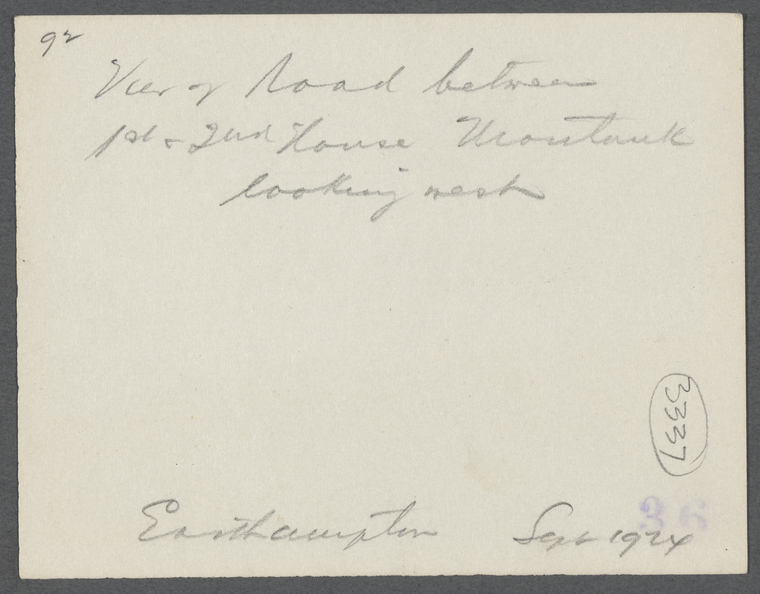 92
View of Road between
1st & 2nd House Montauk
looking west
3337
Easthampton Sept 1924